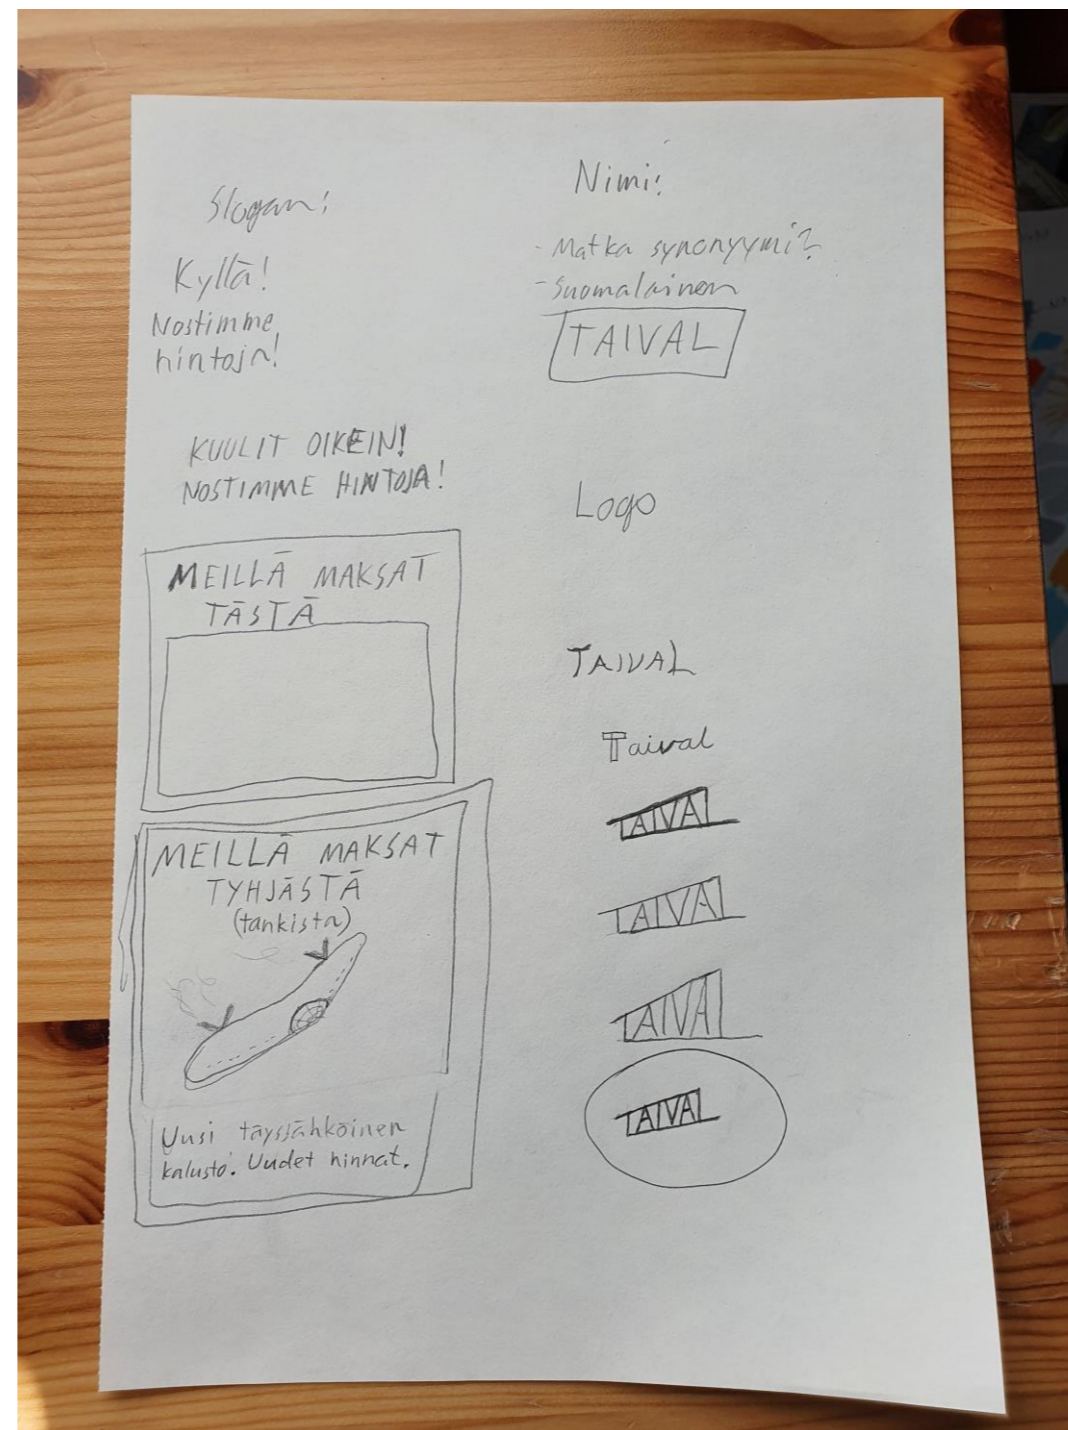 Slogan:
Kyllä!
Nostimme
hintoja!
KUULIT OIKEIN!
NOSTIMME HINTOJA!
MEILLÄ MAKSAT
TÄSTÄ
MEILLÄ MAKSAT
TYHJÄSTÄ
(tankista)
Uusi täyssähköinen
kalusto. Uudet hinnat.
Nimi:
- Matka synonyymi?
- Suomalainen
TAIVAL
Logo
TAIVAL
Taival
TAIVAL
TAIVAL
TAIVAL
TAIVAL